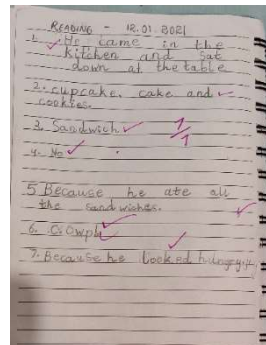 READING - 12.01.2021
1. He came in the
kitchen and sat
down at the table
2. cupcake, cake and
cookies.
3. Sandwich
7/7
4. No
5 Because he ate all
the sandwishes.
6.
7. Because he looked hungry.